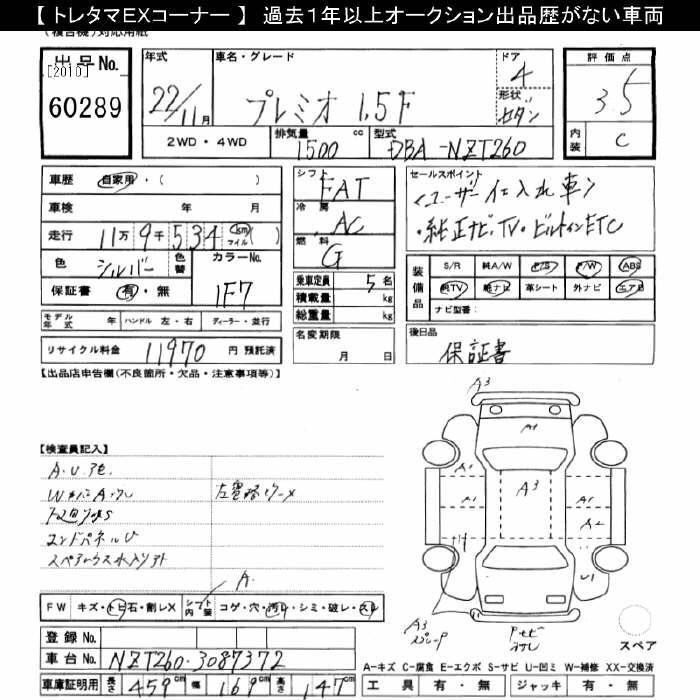 【トレタマEXコーナー】 過去1年以上オークション出品歴がない車両
出品No.
[2010]
60289
年式
22/11月
車名・グレード
プレミオ 1.5F
ドア
4
形状
セダン
評価点
3.5
内装
C
2WD・4WD
排気量 1500 cc
型式 DBA-NZT260
車歴 自家用・( )
車検 年 月
走行 11万9千534 km マイル ( )
色 シルバー
色替
カラーNo. 1F7
保証書 有・無
モデル年式 年
ハンドル 左・右
ディーラー・並行
リサイクル料金 11970 円 預託済
シフト FAT
冷房 AC
燃料 G
乗車定員 5 名
積載量 kg
総重量 kg
名変期限 月 日
セールスポイント
<ユーザー仕入れ車>
・純正ナビ、TV・ビルトインETC
装備品
S/R 純A/W P/S P/W ABS
純TV 純ナビ 革シート 外ナビ エアB
ナビ型番:
後日品
保証書
【出品店申告欄(不良箇所・欠品・注意事項等)】
【検査員記入】
エンドパネルU
A.
FW キズ・トビ石・割レX
シフト内装 コゲ・穴・汚レ・シミ・破レ・スレ
登録No.
車台No. NZT260-3087372
車庫証明用 長さ 459 幅 169 高さ 147 cm
A3
A1
A1
A1
A3
A1
A1
A2
U1
A3
スペア
A-キズ C-腐食 E-エクボ S-サビ U-凹ミ W-補修 XX-交換済
工具 有・無 ジャッキ 有・無